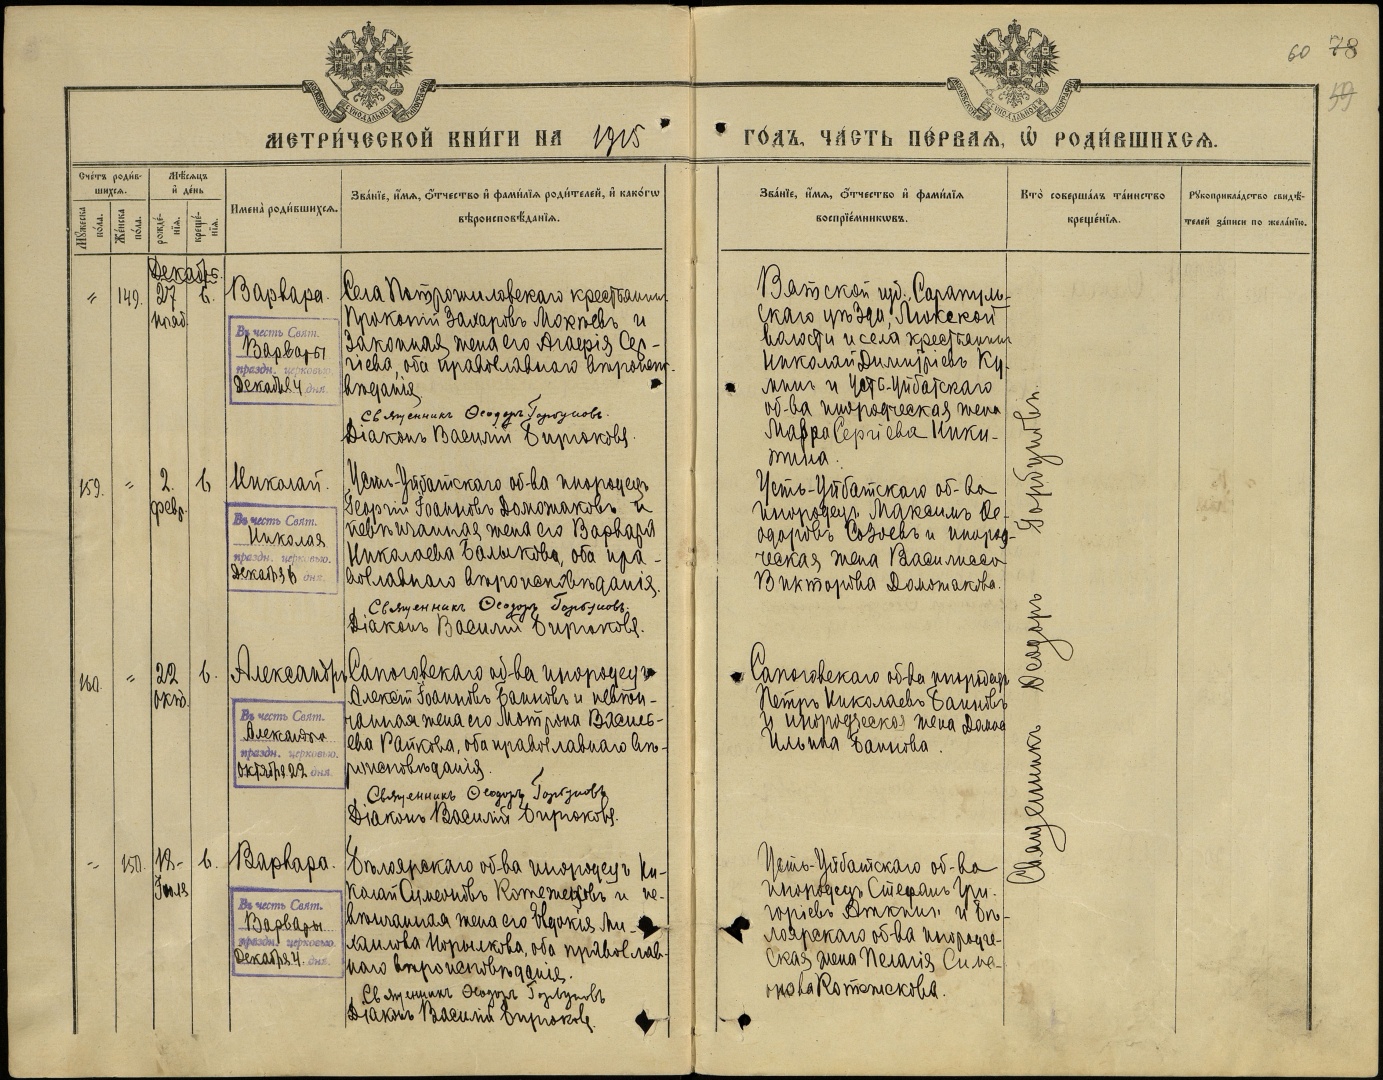 60 78
59
МЕТРИ́ЧЕСКОЙ КНИ́ГИ НА 1915 ГО́ДЪ, ЧА́СТЬ ПЕ́РВАЯ, Ѡ҆ РОДИ́ВШИХСЯ.
Сче́тъ роди́вшихся.
Му́жеска по́ла.
Же́нска по́ла.
Мѣ́сяцъ и҆ де́нь
рожде́нїя.
креще́нїя.
И҆мена̀ роди́вшихся.
Зва́нїе, и҆́мя, ѻ҆́тчество и҆ фами́лїя роди́телей, и҆ како́гѡ
вѣроисповѣ́данїя.
Зва́нїе, и҆́мя, ѻ҆́тчество и҆ фами́лїя
воспрїе́мникѡвъ.
Кто̀ соверша́лъ та́инство
креще́нїя.
Рꙋкоприкла́дство свидѣ́телей за́писи по жела́нїю.
Декабрь.
" 149. 27 6. Варвара.
нояб.
Въ честь Свят.
Варвары
праздн. церковью.
Декабря 4 дня.
Села
крестьянин
Прокопій Захаровъ и
законная жена его Агаѳія Сер-
гіева, оба православнаго вѣроиспо-
вѣданія
Священникъ Ѳеодоръ Горбуновъ.
Діаконъ Василій Бирюковъ.
Вятской губ. Сарапуль-
скаго уѣзда,
волости и села крестьянин
Николай Димитріевъ Ку-
и Усть-Уйбатскаго
об-ва инородческая жена
Мавра Сергіева Ники-
тина.
159. " 2. 6 Николай.
февр.
Въ честь Свят.
Николая
праздн. церковью.
Декабря 6 дня.
Усть-Уйбатскаго об-ва инородецъ
Георгій Іоанновъ Доможаковъ и
невѣнчанная жена его Варвара
Николаева Балыкова, оба пра-
вославнаго вѣроисповѣданія.
Священникъ Ѳеодоръ Горбуновъ.
Діаконъ Василій Бирюковъ.
Усть-Уйбатскаго об-ва
инородецъ Максимъ Ѳе-
одоровъ и инород-
ческая жена Василисса
Викторова Доможакова.
160. " 22 6. Александръ
окт.
Въ честь Свят.
Александра
праздн. церковью.
октября 22 дня.
Сапоговскаго об-ва инородецъ
Алексѣй Іоанновъ Баиновъ и невѣн-
чанная жена его Матрона Василь-
ева Райкова, оба православнаго вѣ-
роисповѣданія.
Священникъ Ѳеодоръ Горбуновъ
Діаконъ Василій Бирюковъ.
Сапоговскаго об-ва инородецъ
Петръ Николаевъ Баиновъ
и инородческая жена Домна
Ильина Баинова.
" 150. 18- 6. Варвара.
Іюля
Въ честь Свят.
Варвары
праздн. церковью.
Декабря 4. дня.
Бѣлоярскаго об-ва инородецъ Ни-
колай Симеоновъ и не-
вѣнчанная жена его Евдокія Ми-
хаилова Норылкова, оба православ-
наго вѣроисповѣданія.
Священникъ Ѳеодоръ Горбуновъ
Діаконъ Василій Бирюковъ.
Усть-Уйбатскаго об-ва
инородецъ Стефанъ Гри-
горіевъ и Бѣ-
лоярскаго об-ва инородче-
ская жена Пелагія Симе-
онова
Священникъ Ѳеодоръ Горбуновъ.